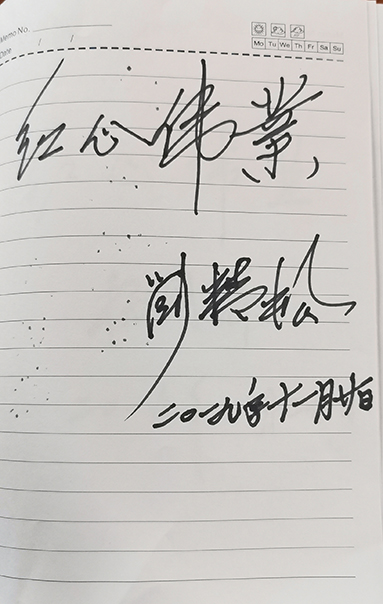 Memo No.
Mo Tu We Th Fr Sa Su
Date / /
红心伟業
劉精松
二〇一九年十一月廿日